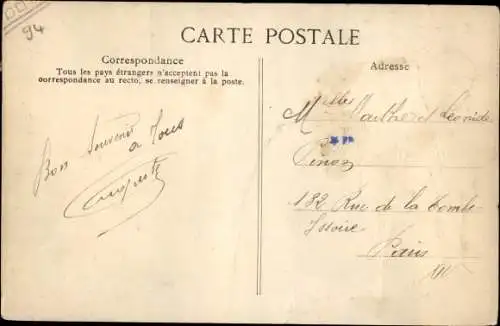 94
CARTE POSTALE
Correspondance
Tous les pays étrangers n'acceptent pas la
correspondance au recto, se renseigner à la poste.
Bon Souvenir
a Tous
Auguste
Adresse
Melles Marthe et Léonide
Pinon
182 Rue de la Tombe
Issoire
Paris